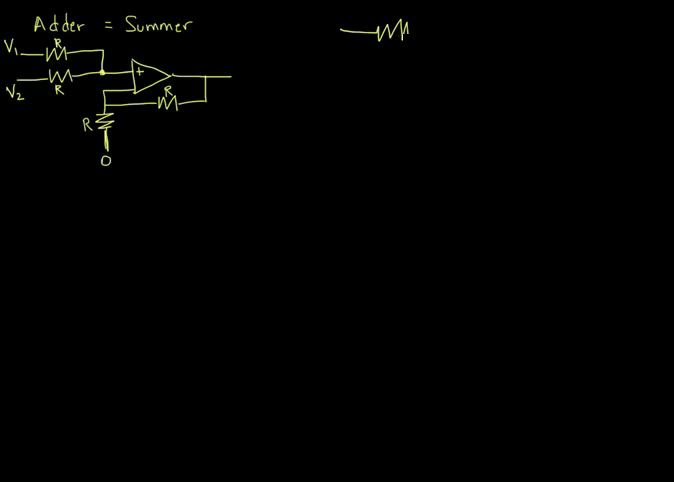 Adder = Summer
V1 R
R
V2
+
R
R
0